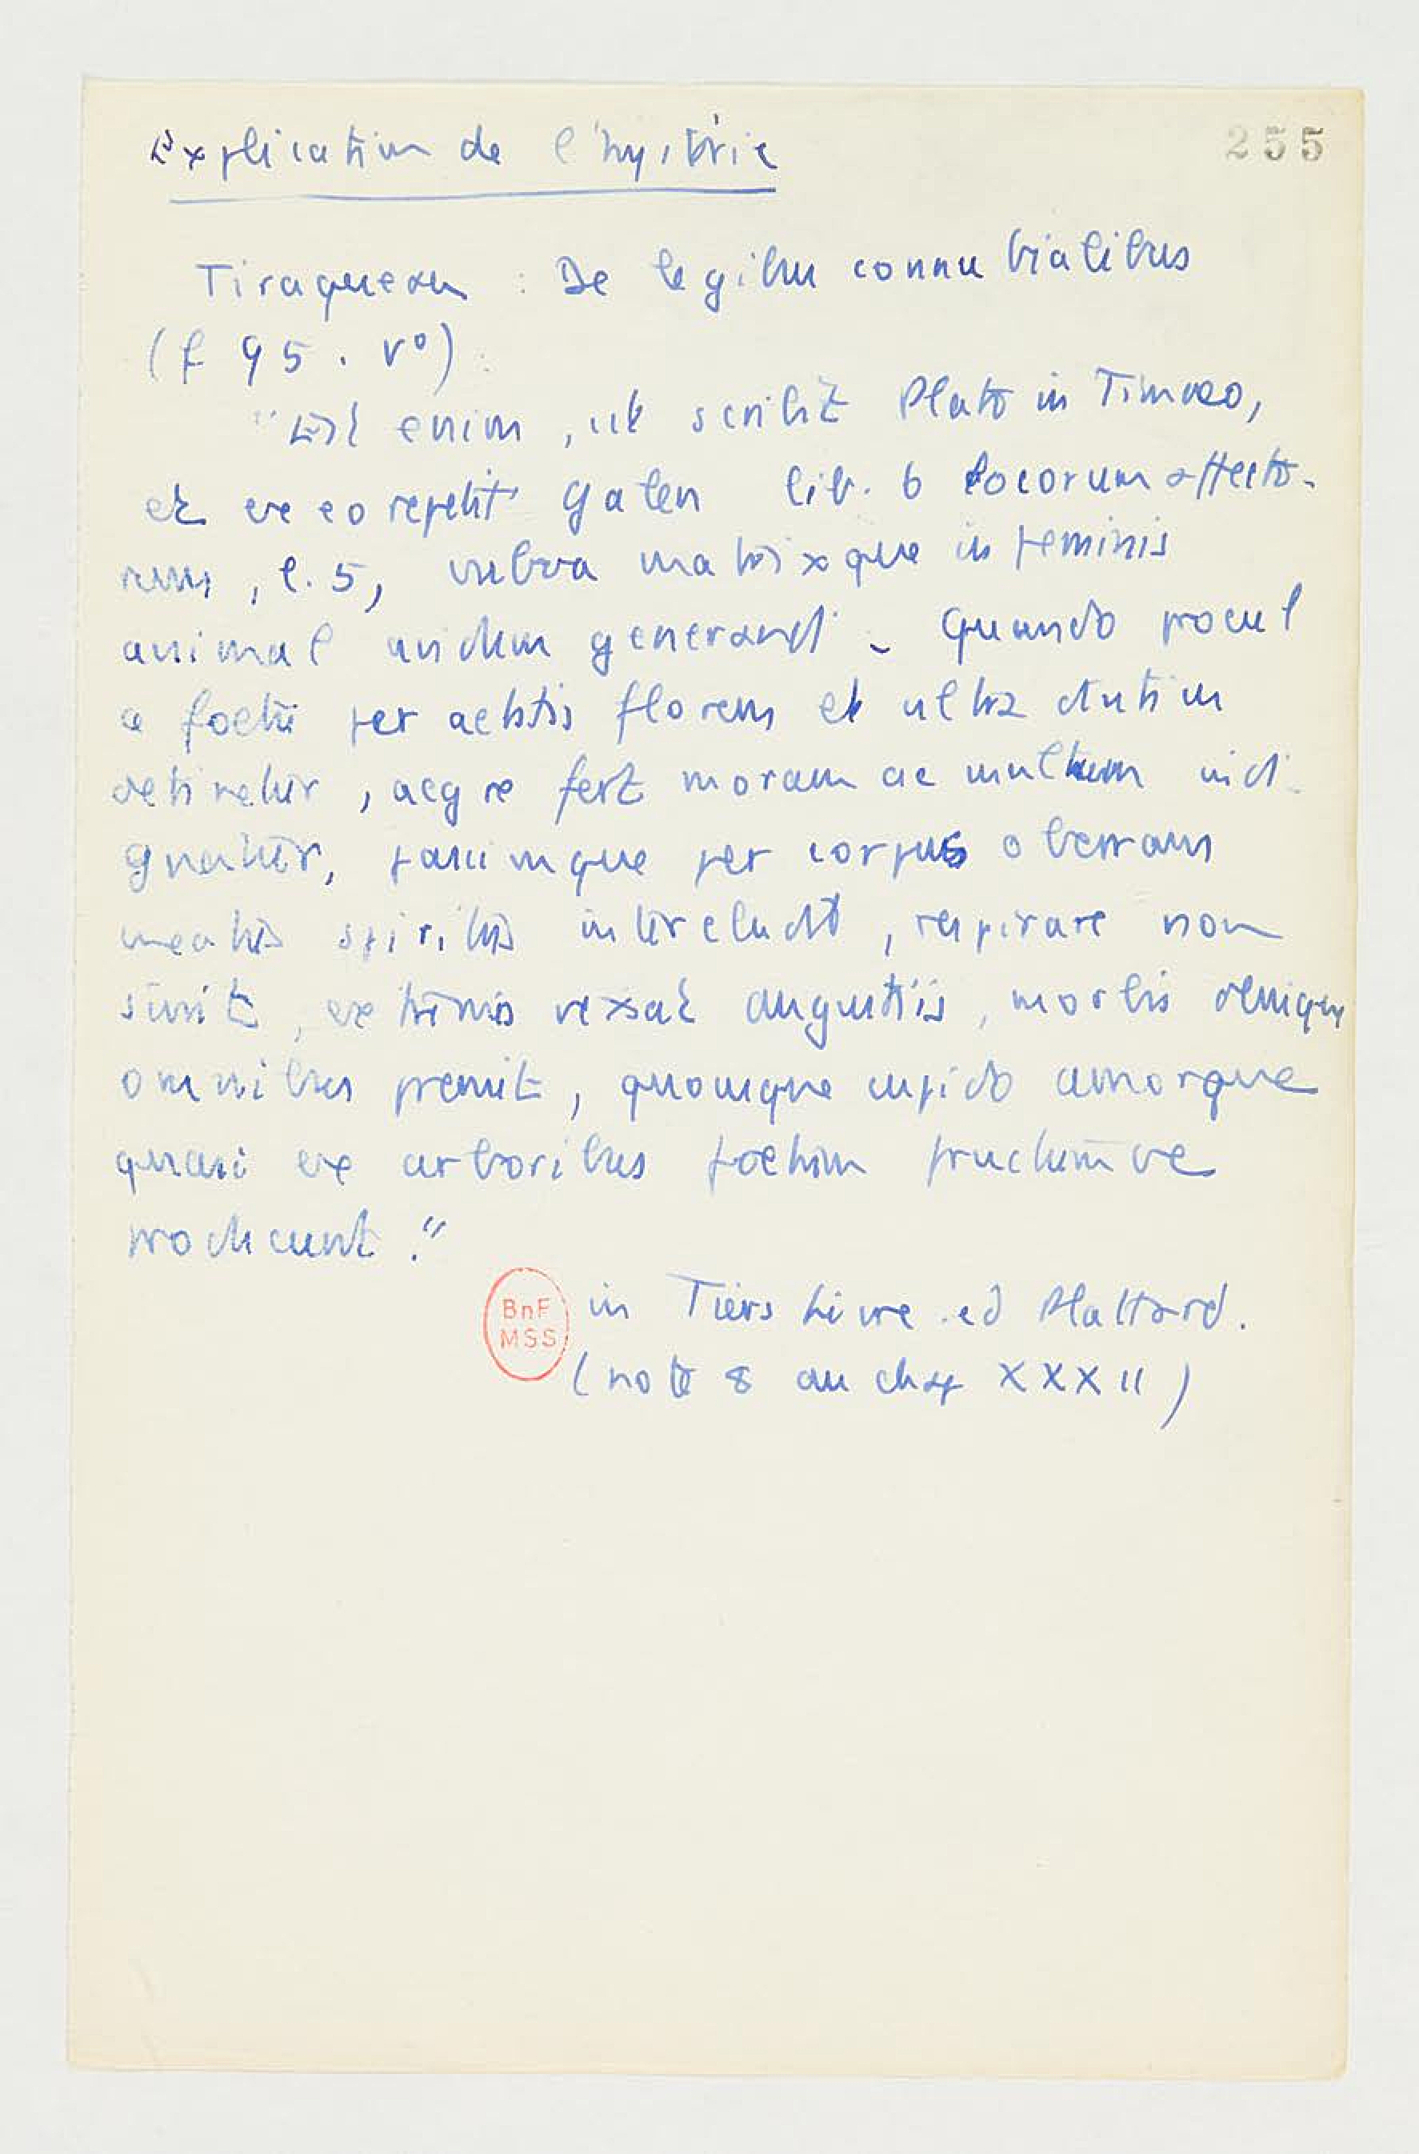 Explication de l'hystérie
255
Tiraqueau : De legibus connubialibus
(f 95. v°) :
"Est enim, ut scribit Plato in Timaeo,
et ex eo repetit Galen lib. 6 locorum affecto-
rum, c. 5, vulva matrixque in feminis
animal avidum generandi. Quando procul
a foetu per aetatis florem et ultra diutius
detinetur, aegre fert moram ac multum indi-
gnatur, passimque per corpus oberrans
meatus spiritus intercludit, respirare non
sinit, extremis vexat angustiis, morbis denique
omnibus premit, quousque cupido amorque
quasi ex arboribus foetum fructumve
producunt."
in Tiers Livre. ed Plattard.
(note 8 au chap XXXII)
BnF
MSS